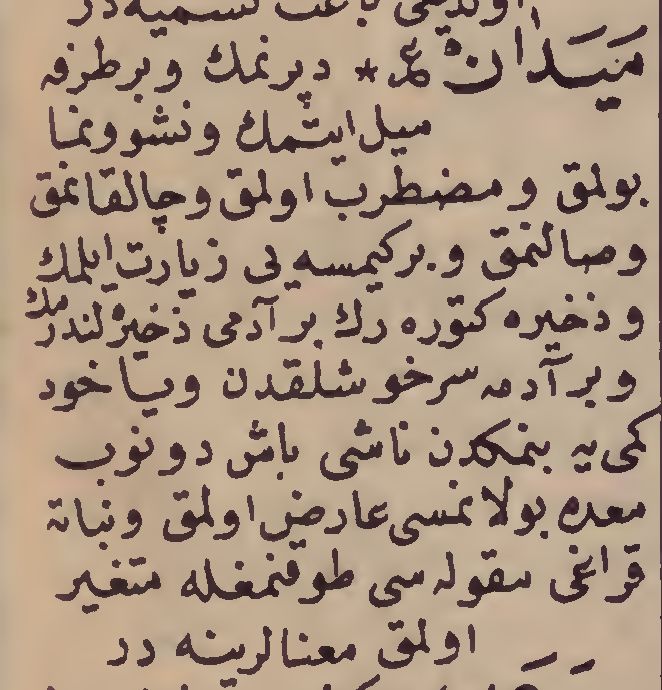 اولديغى باعث تسميه در
مَيَدَانْ ع * دپرنمك وبر طرفه
ميل ايتمك ونشوونما
بولمق ومضطرب اولمق وچالقانمق
وصالنمق وبر كيمسه يى زيارت ايلمك
وذخيره كتوره رك بر آدمى ذخيره لندرمك
وبر آدمه سرخوشلقدن وياخود
كمى يه بنمكدن ناشى باش دونوب
معده بولانمسى عارض اولمق ونباته
قراغى مقوله سى طوقنمغله متغير
اولمق معنالرينه در